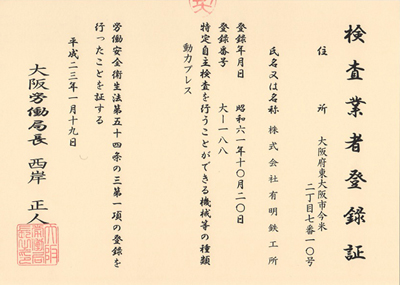 検査業者登録証
住所 大阪府東大阪市今米
二丁目七番一〇号
氏名又は名称 株式会社有明鉄工所
登録年月日 昭和六一年一〇月二〇日
登録番号 大ー一八八
特定自主検査を行うことができる機械等の種類
動力プレス
労働安全衛生法第五十四条の三第一項の登録を
行ったことを証する
平成二三年一月十九日
大阪労働局長 西岸 正人